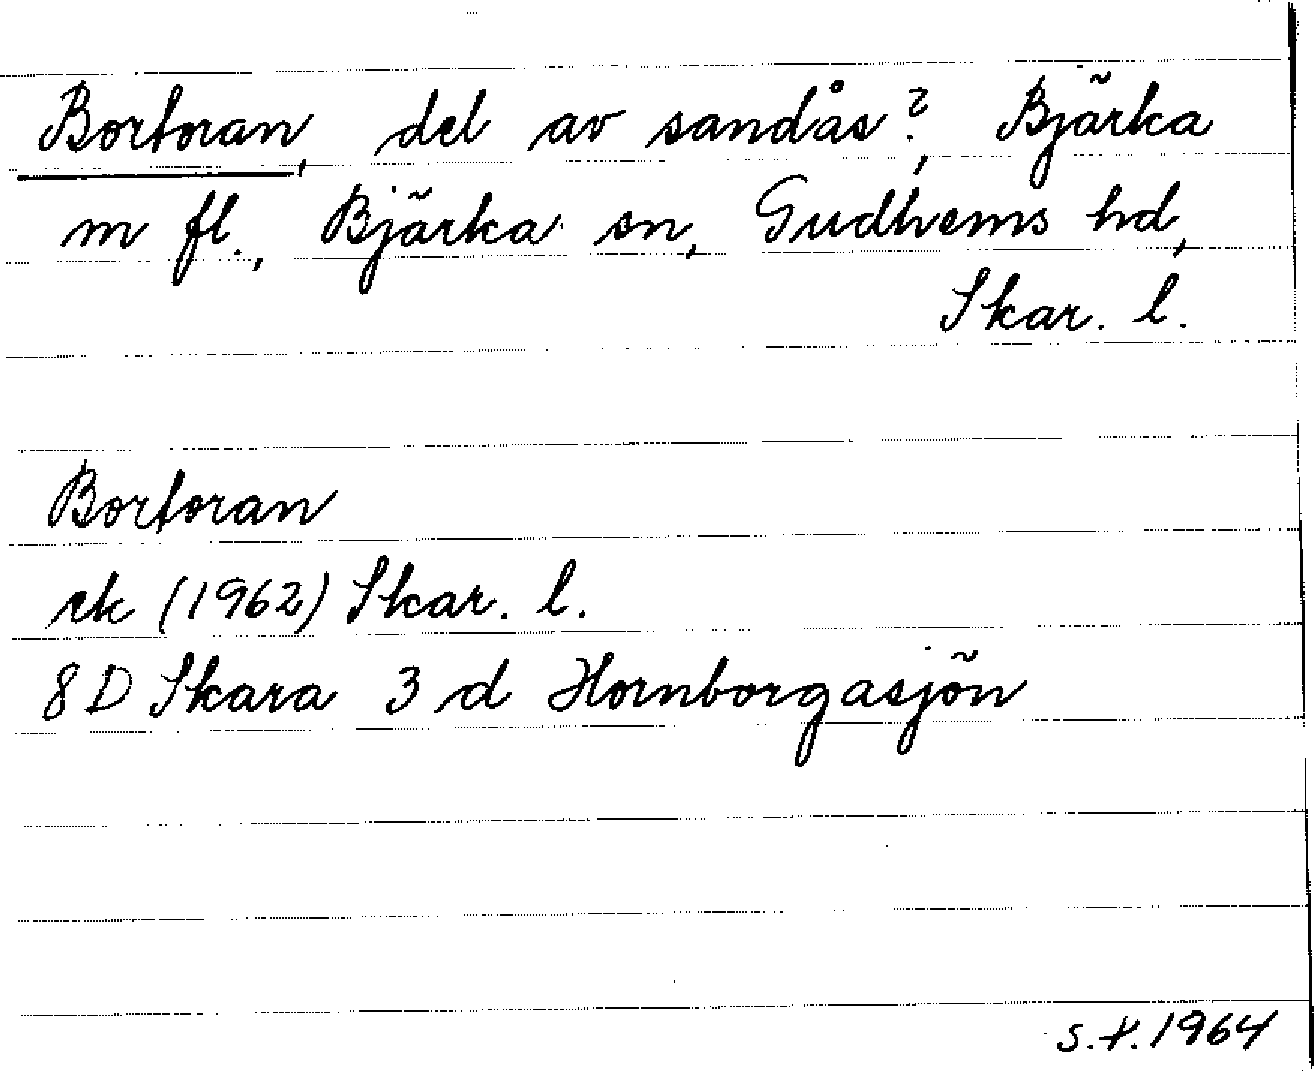 Bortoran, del av sandås?, Bjärka
m fl., Bjärka sn, Gudhems hd,
Skar. l.
Bortoran
ek (1962) Skar. l.
8 D Skara 3 d Hornborgasjön
1964